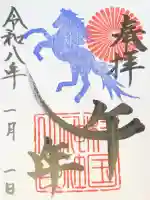 奉拝
午年
令和八年
一月一日